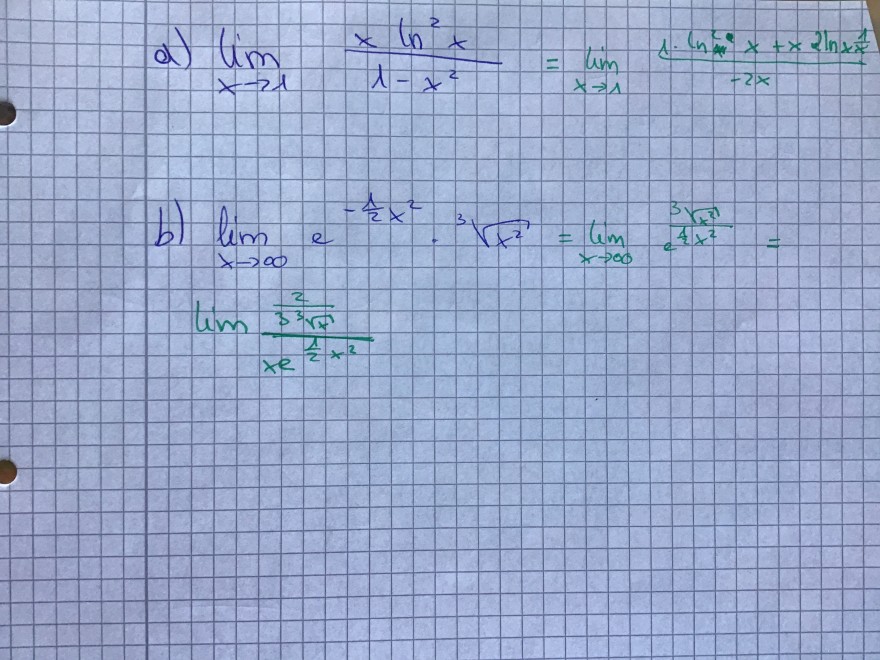 a) lim x→1 x ln² x / (1 - x²) = lim x→1 (1 · ln² x + x 2ln x 1/x) / (-2x)
b) lim x→∞ e^(-1/2 x²) · ³√x² = lim x→∞ ³√x² / e^(1/2 x²) =
lim (2 / (3 ³√x)) / (x e^(1/2 x²))